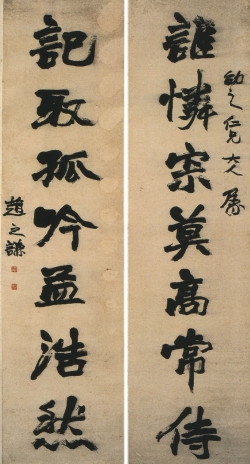 幼之仁兄大人屬
誰憐宗莫高常侍
記取孤吟孟浩然
趙之謙